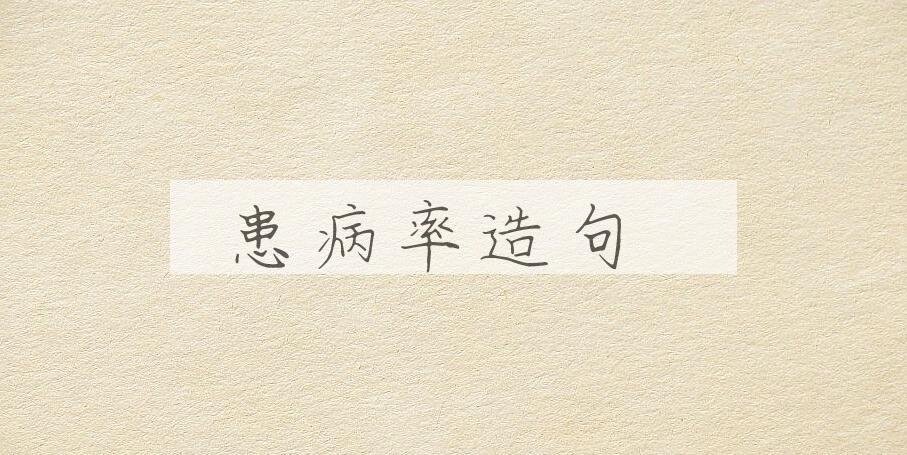 患病率造句